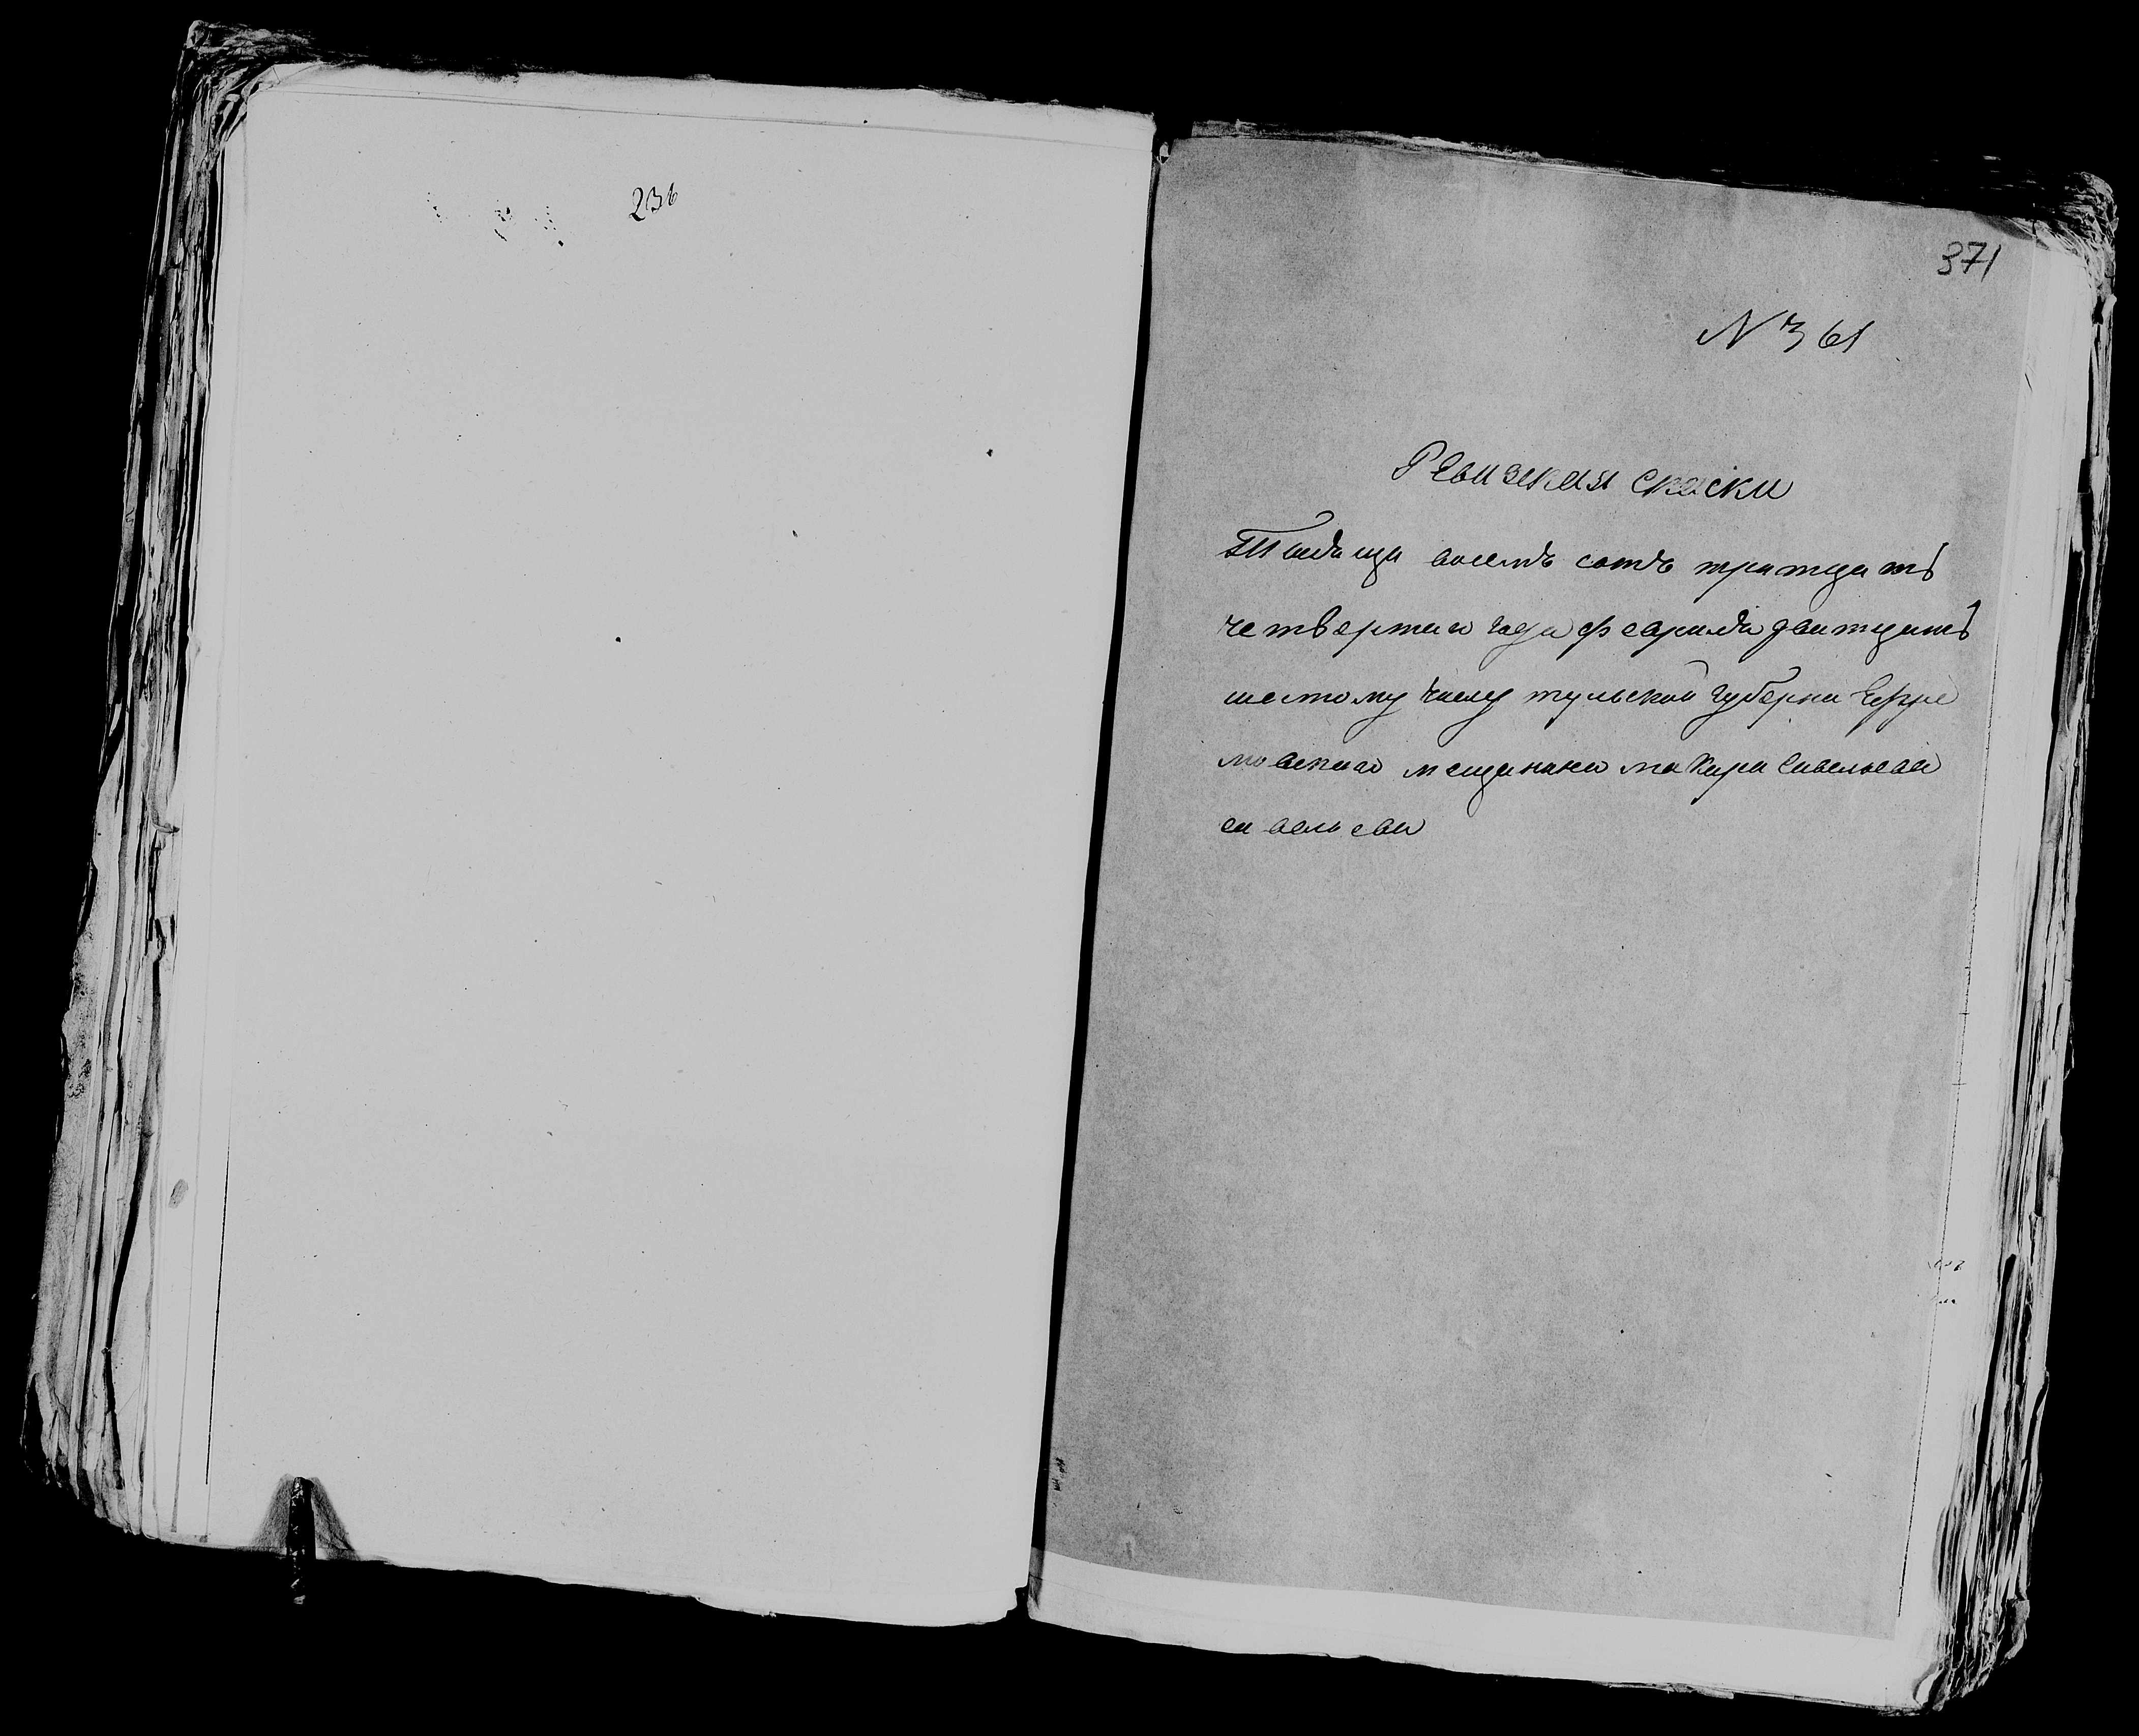 236
371
N 361
Ревизская скаски
Тысяща восемъ сотъ тратцать
четвертаго года февраля дватцать
шестому числу тульской губерни Ефре
мовскаго мещанина макара Савельева
савельева